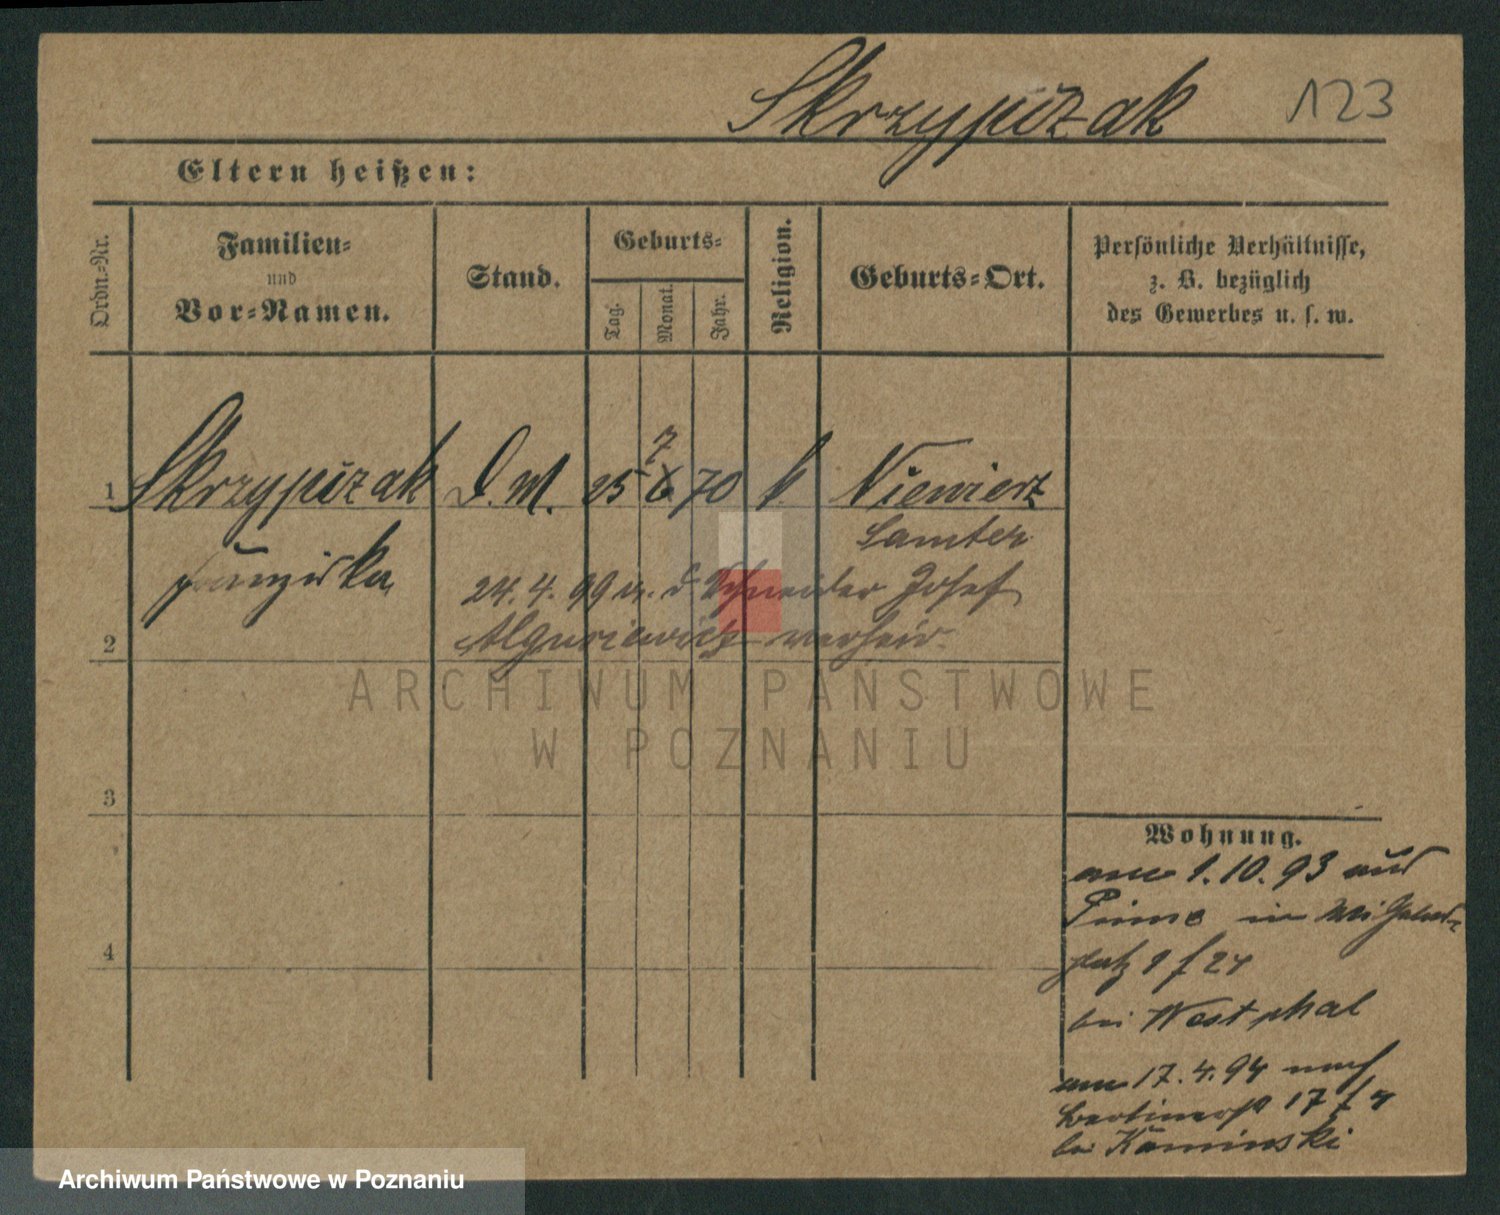 Skrzypczak 123
Eltern heißen:
Ordn.-Nr.
Familien-
und
Vor-Namen.
Stand.
Geburts-
Tag.
Monat.
Jahr.
Religion.
Geburts-Ort.
Persönliche Verhältnisse,
z. B. bezüglich
des Gewerbes u. s. w.
7
1 Skrzypczak D. M. 25 6 70 k. Niewierz
Samter
Franziska
24. 4. 99 m. d. Schneider Josef
2 verheir.
ARCHIWUM PAŃSTWOWE
W POZNANIU
3
Wohnung.
am 1.10.93 aus
in Wilhelms-
4
platz 9 f 24
bei Westphal
am 17.4.94 nach
17 f 4
bei Kaminski
Archiwum Państwowe w Poznaniu